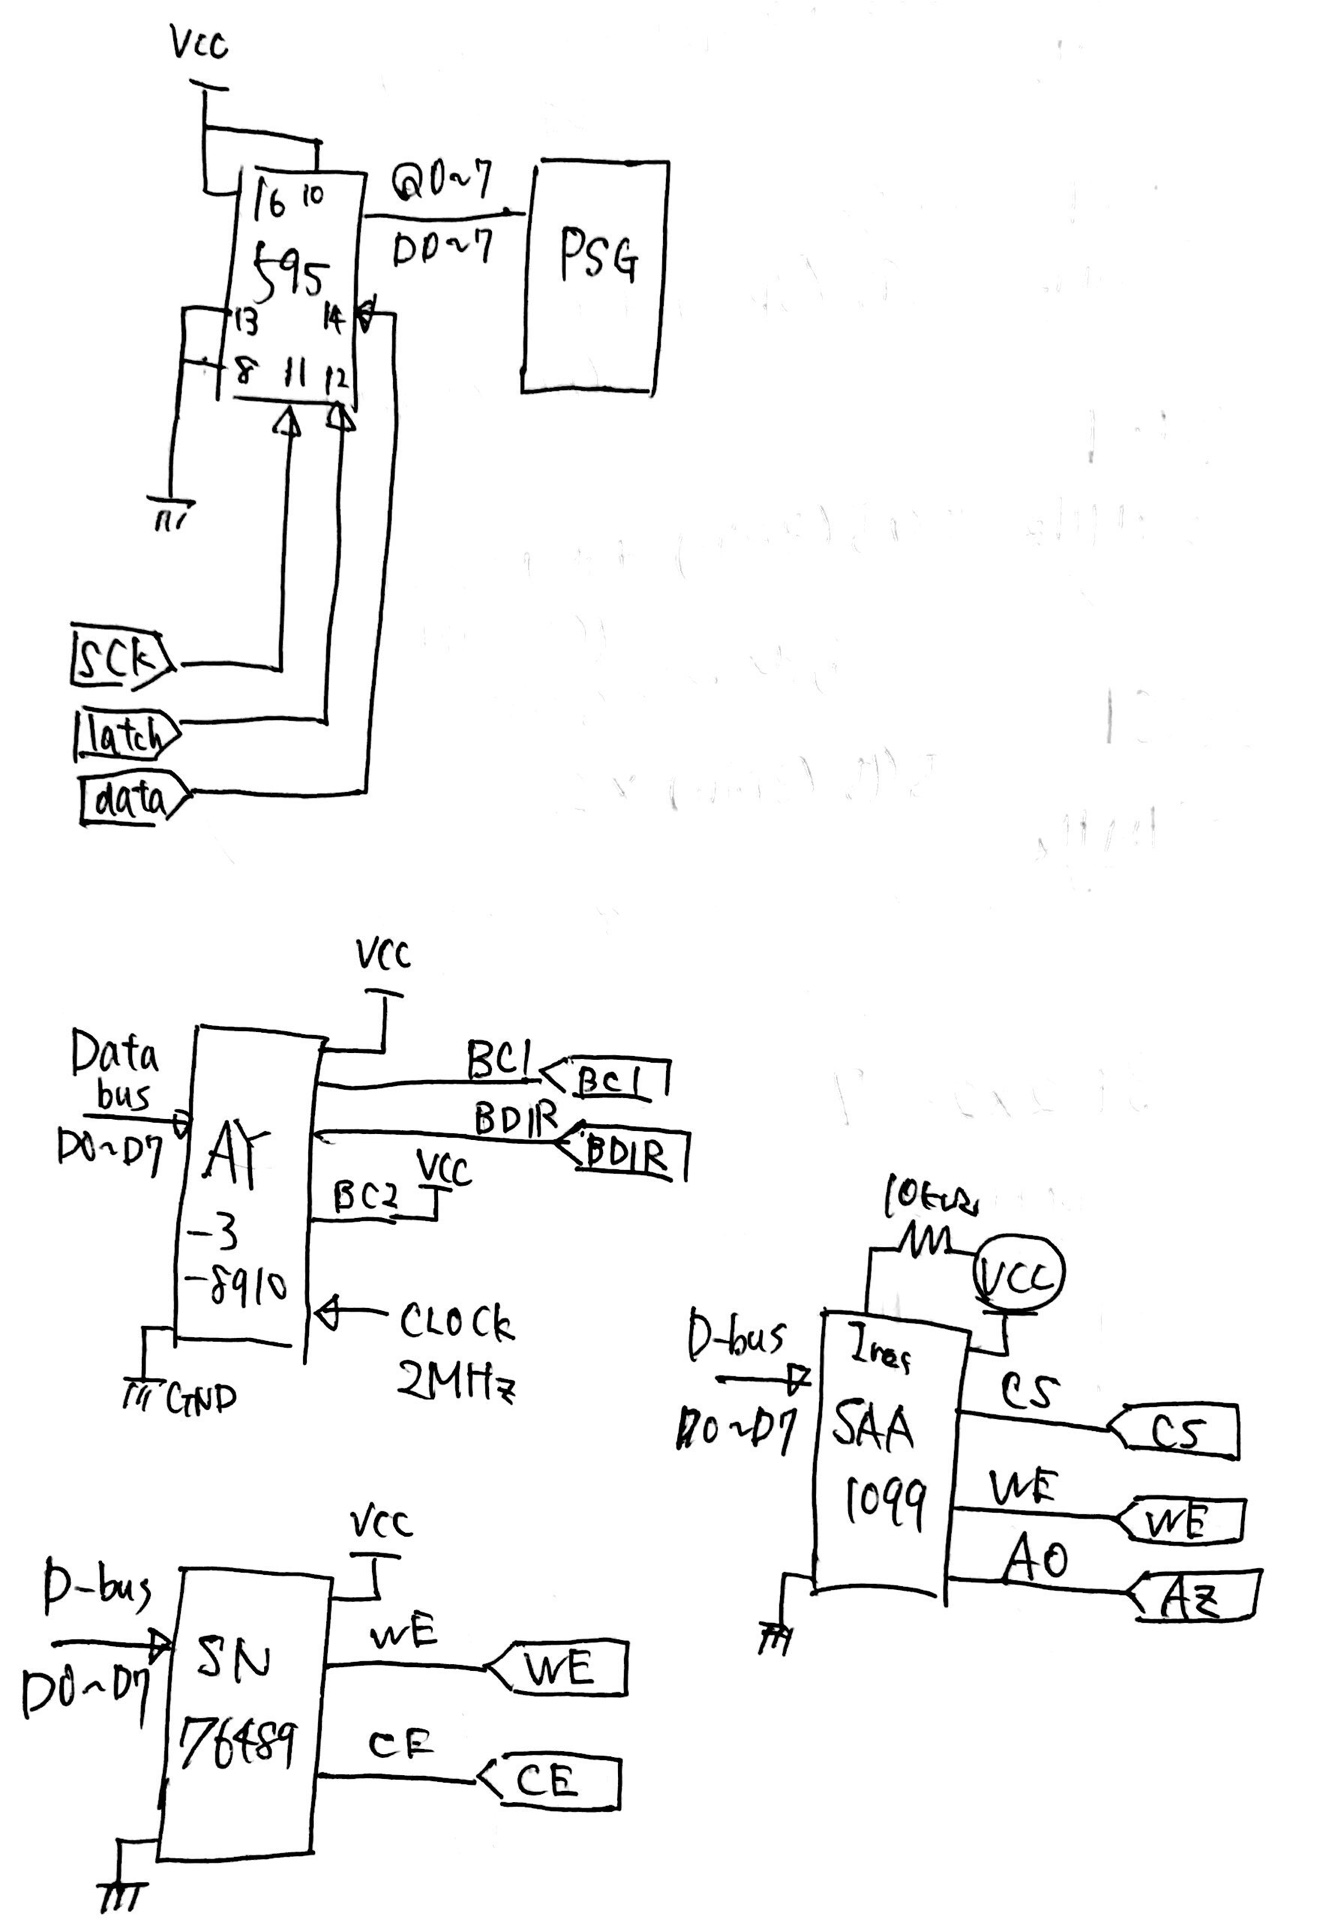 VCC
16 10
595
13 14
8 11 12
Q0~7
D0~7
PSG
SCK
latch
data
VCC
Data
bus
D0~D7
AY
-3
-8910
BC1
BC1
BDIR
BDIR
BC2
VCC
CLOCK
2MHz
GND
10kΩ
VCC
D-bus
D0~D7
Iref
SAA
1099
CS
CS
WE
WE
A0
AZ
VCC
D-bus
D0~D7
SN
76489
WE
WE
CE
CE